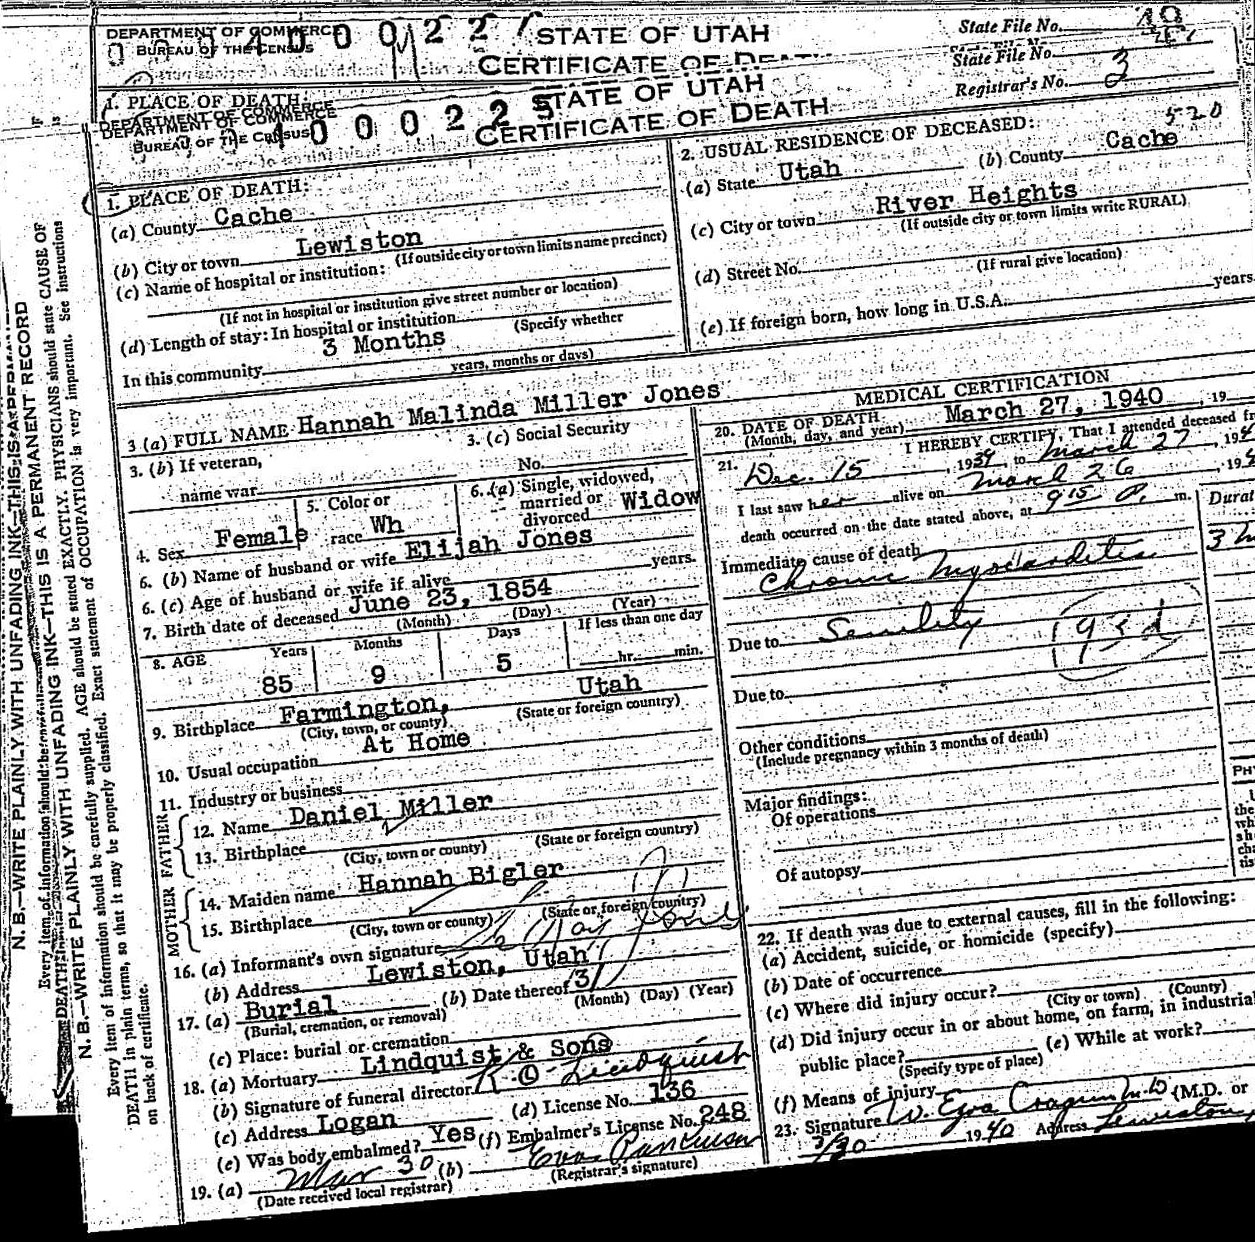 DEPARTMENT OF COMMERCE
BUREAU OF THE CENSUS
STATE OF UTAH
CERTIFICATE OF DEATH
State File No.
1. PLACE OF DEATH:
DEPARTMENT OF COMMERCE
BUREAU OF THE CENSUS
400022
STATE OF UTAH
CERTIFICATE OF DEATH
State File No.
Registrar's No. 3
520
1. PLACE OF DEATH:
(a) County Cache
(b) City or town Lewiston
(If outside city or town limits name precinct)
(c) Name of hospital or institution:
(If not in hospital or institution give street number or location)
(d) Length of stay: In hospital or institution
(Specify whether
In this community 3 Months
years, months or days)
2. USUAL RESIDENCE OF DECEASED:
(a) State Utah (b) County Cache
(c) City or town River Heights
(If outside city or town limits write RURAL)
(d) Street No.
(If rural give location)
(e) If foreign born, how long in U.S.A. years
3 (a) FULL NAME Hannah Malinda Miller Jones
3. (b) If veteran,
name war
3. (c) Social Security
No.
4. Sex Female
5. Color or
race Wh
6. (a) Single, widowed,
married or
divorced Widow
6. (b) Name of husband or wife Elijah Jones
6. (c) Age of husband or wife if alive years.
7. Birth date of deceased June 23, 1854
(Month) (Day) (Year)
8. AGE Years Months Days If less than one day
85 9 5 hr. min.
9. Birthplace Farmington, Utah
(City, town, or county) (State or foreign country)
10. Usual occupation At Home
11. Industry or business
FATHER
12. Name Daniel Miller
13. Birthplace
(City, town or county) (State or foreign country)
MOTHER
14. Maiden name Hannah Bigler
15. Birthplace
(City, town or county) (State or foreign country)
16. (a) Informant's own signature
(b) Address Lewiston, Utah
17. (a) Burial (b) Date thereof 3/
(Burial, cremation, or removal) (Month) (Day) (Year)
(c) Place: burial or cremation
18. (a) Mortuary Lindquist & Sons
(b) Signature of funeral director Lindquist
(c) Address Logan (d) License No. 136
(e) Was body embalmed? Yes (f) Embalmer's License No. 248
19. (a) Mar 30 (b) Eva Parkinson
(Date received local registrar) (Registrar's signature)
MEDICAL CERTIFICATION
20. DATE OF DEATH March 27, 1940, 19
(Month, day, and year)
21. I HEREBY CERTIFY, That I attended deceased
Dec. 15, 1939, to March 27, 19
I last saw her alive on March 26, 19
death occurred on the date stated above, at 9 15 P. m.
Immediate cause of death
Chronic Myocarditis
3
Due to Senility
93d
Due to
Other conditions
(Include pregnancy within 3 months of death)
Major findings:
Of operations
Of autopsy
22. If death was due to external causes, fill in the following:
(a) Accident, suicide, or homicide (specify)
(b) Date of occurrence
(c) Where did injury occur?
(City or town) (County)
(d) Did injury occur in or about home, on farm, in industrial
public place? (e) While at work?
(Specify type of place)
(f) Means of injury
23. Signature W. Ezra Cragun M D (M.D. or
3/30 1940 Address Lewiston
N. B.—WRITE PLAINLY WITH UNFADING INK—THIS IS A PERMANENT RECORD
Every item of information should be carefully supplied. AGE should be stated EXACTLY. PHYSICIANS should state CAUSE OF
DEATH in plain terms, so that it may be properly classified. Exact statement of OCCUPATION is very important. See instructions
on back of certificate.